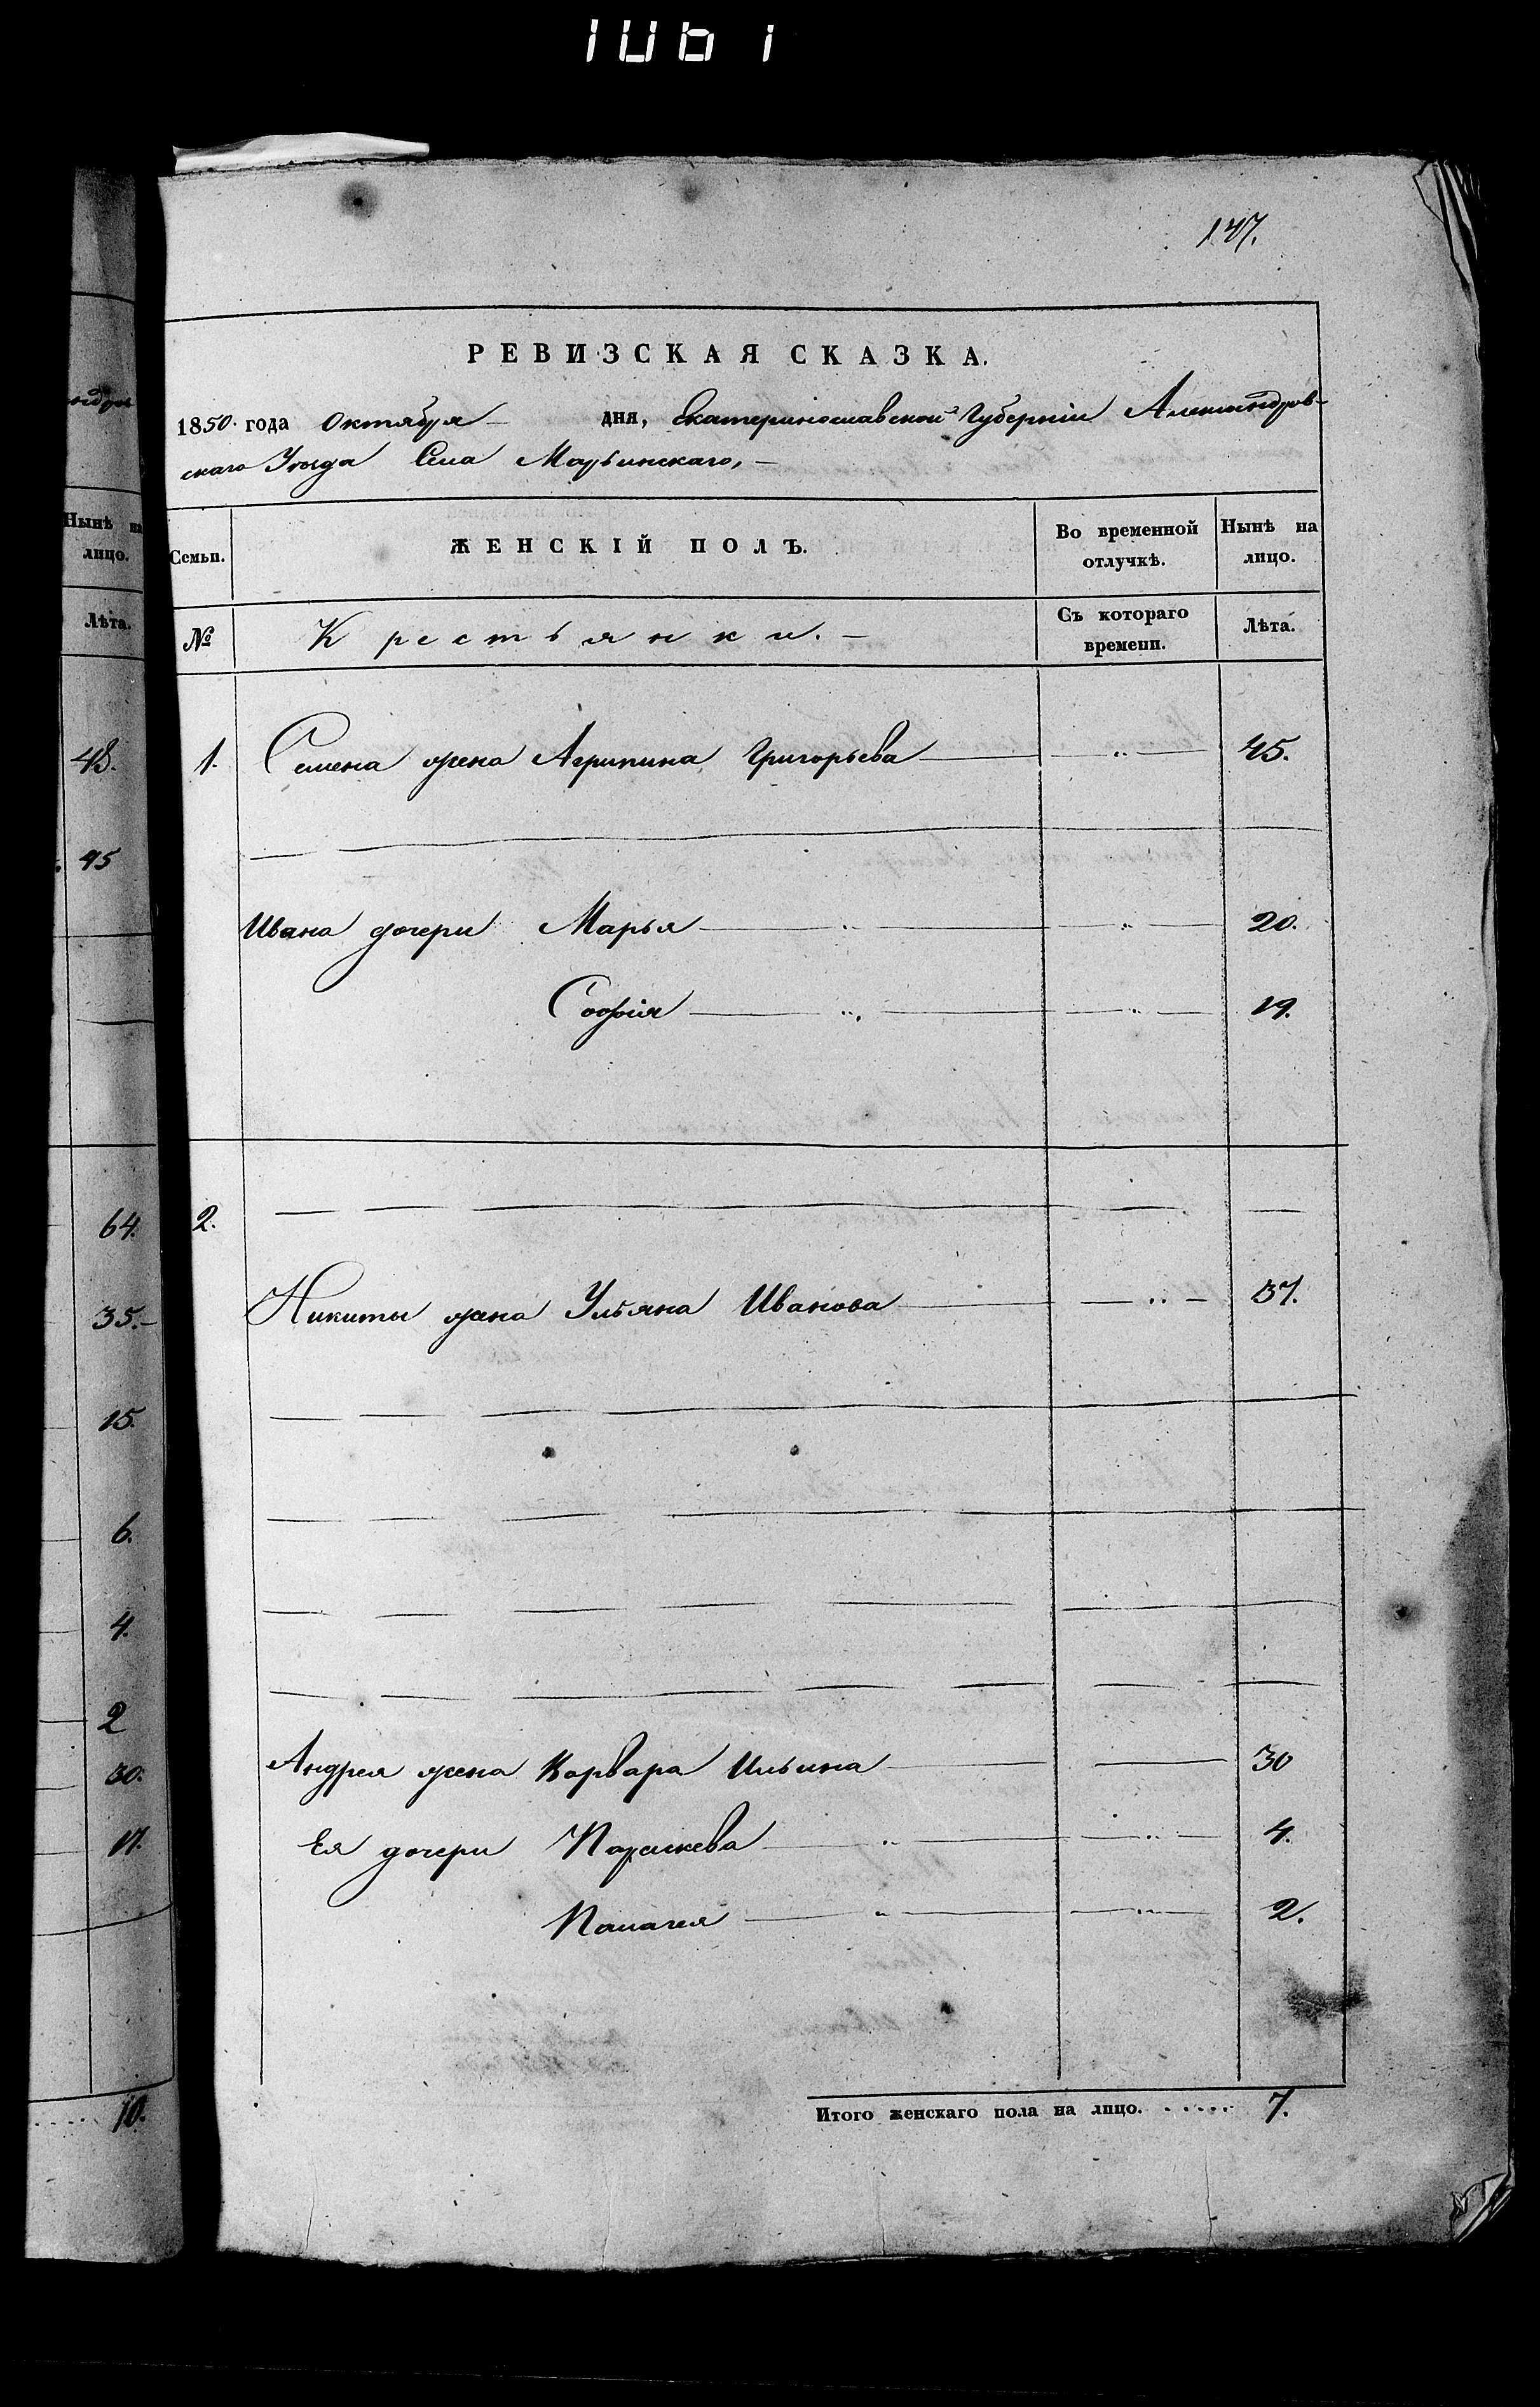 147.
РЕВИЗСКАЯ СКАЗКА.
1850. года Октября дня, Екатеринославской Губерніи Александров-
скаго Уѣзда Села Марьинскаго,
Семьи. ЖЕНСКІЙ ПОЛЪ. Во временной отлучкѣ. Нынѣ на лицо.
№ Крестьянки. Съ котораго времени. Лѣта.
1. Семена жена Агрипина Григорьева 45.
Ивана дочери Марья 20.
Софія 19.
2.
Никиты жена Ульяна Иванова 37.
Андрея жена Варвара Ильина 30
Ея дочери Параскева 4.
Палагея 2.
Итого женскаго пола на лицо. . . . . . 7.
Нынѣ на
лицо.
Лѣта.
48.
45
64.
35.
15.
6.
4.
2
30.
17.
10.